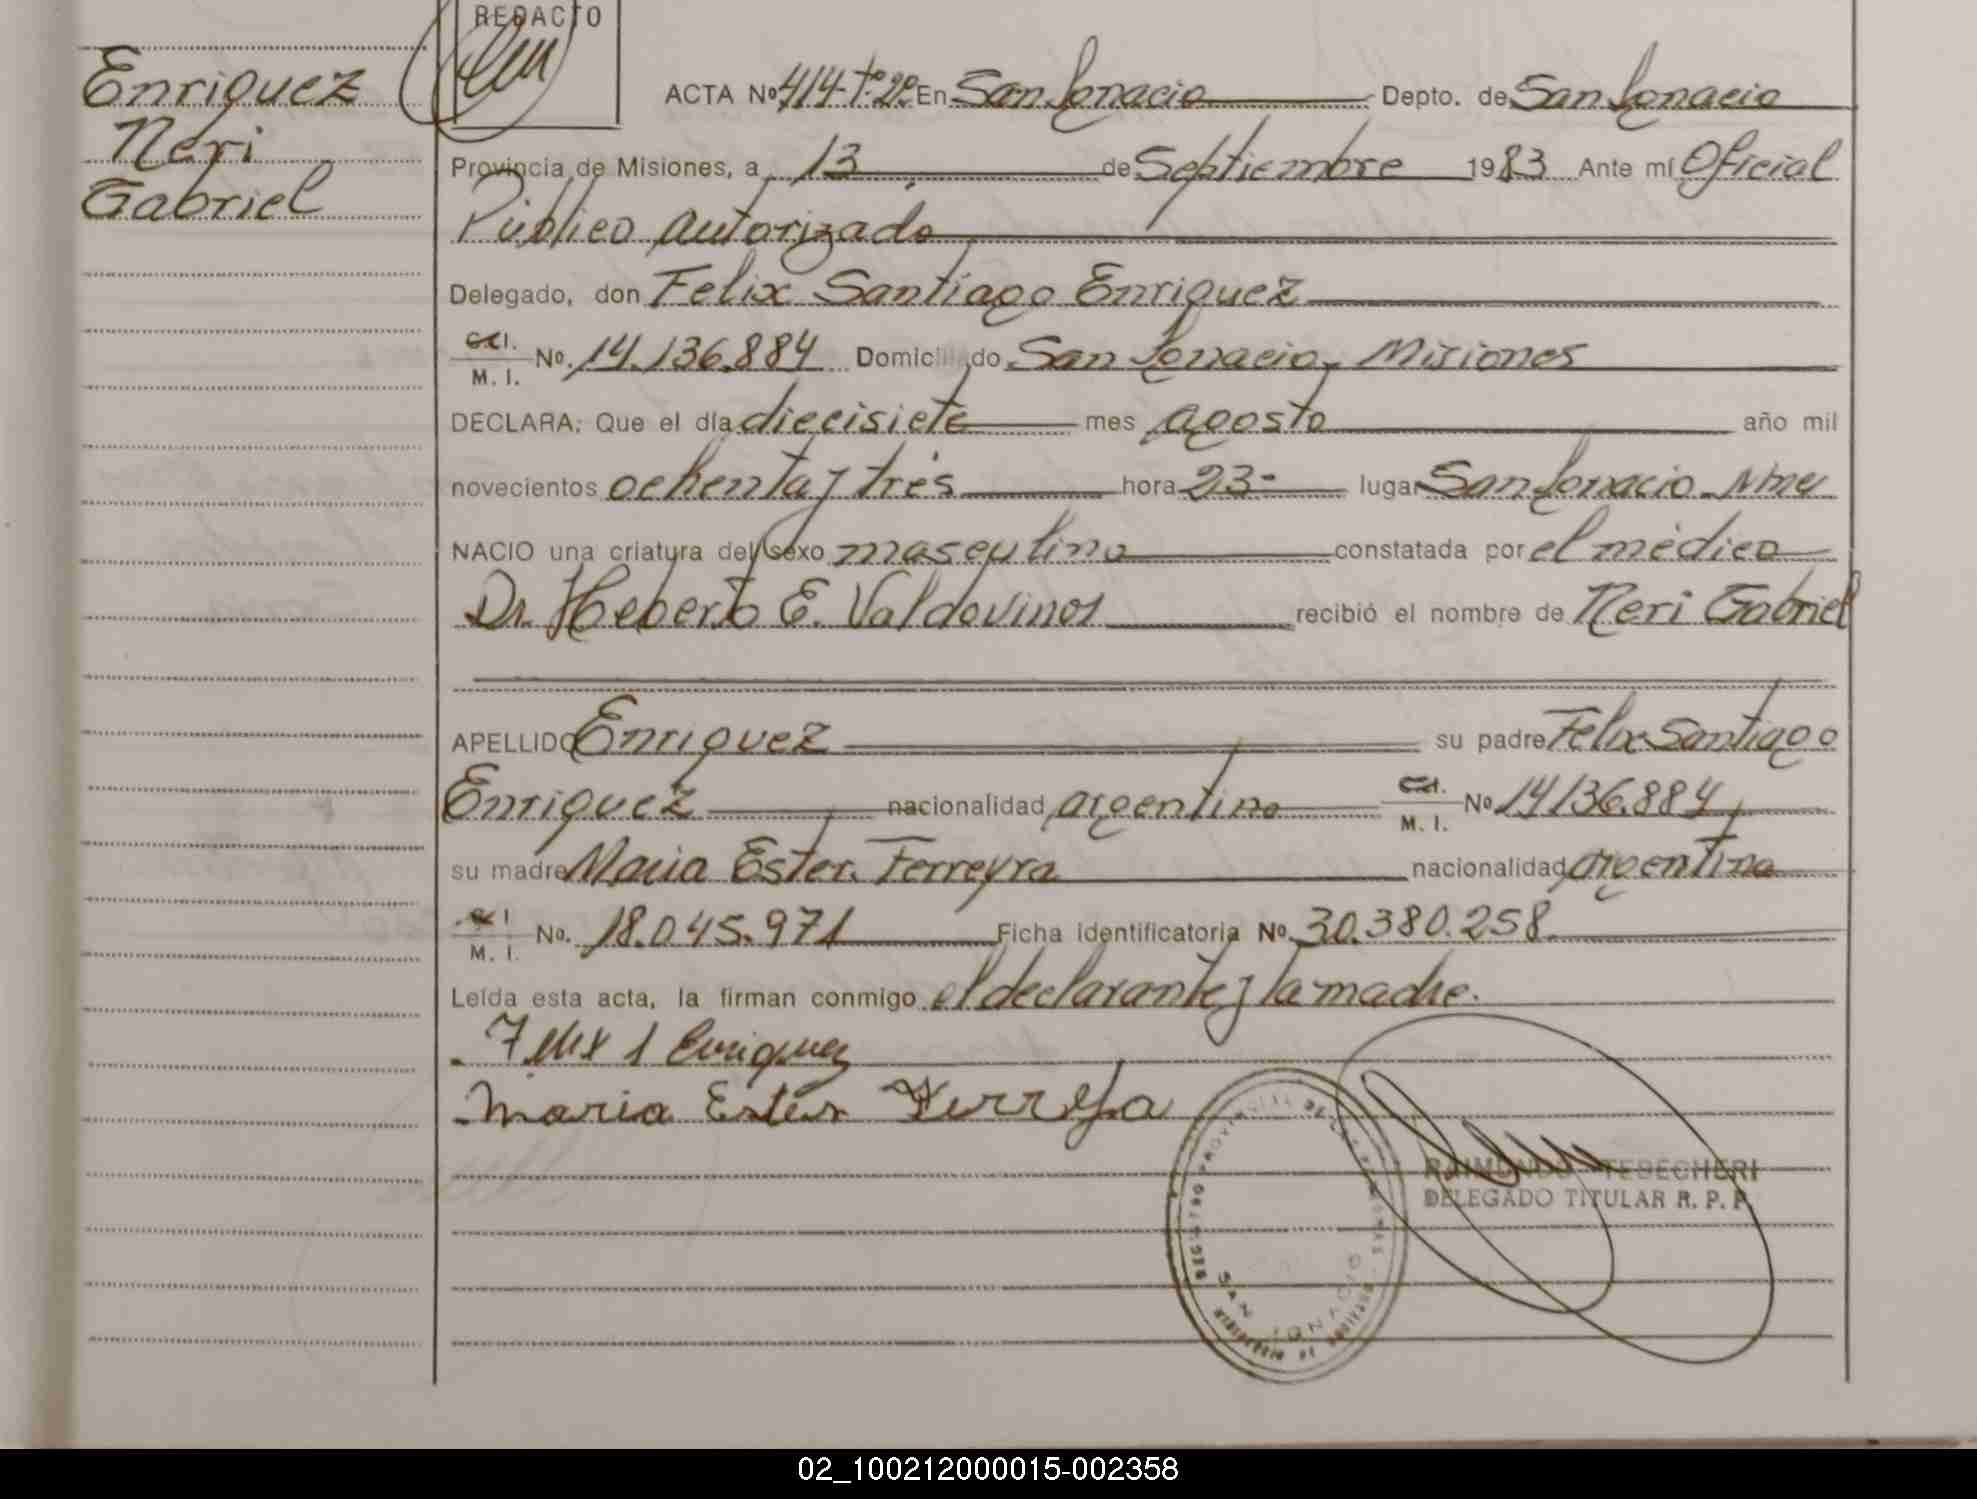 REDACTO
Enriquez
Neri
Gabriel
ACTA Nº 414-Tº 2º En San Ignacio Depto. de San Ignacio
Provincia de Misiones, a 13 de Septiembre 1983 Ante mí Oficial
Público autorizado
Delegado, don Felix Santiago Enriquez
C.I. M. I. No. 14.136.884 Domiciliado San Ignacio, Misiones
DECLARA: Que el día diecisiete mes agosto año mil
novecientos ochenta y trés hora 23- lugar San Ignacio Mnes
NACIO una criatura del sexo masculino constatada por el médico
Dr. Heberto E. Valdovinos recibió el nombre de Neri Gabriel
APELLIDO Enriquez su padre Felix Santiago
Enriquez nacionalidad argentino C.I. M. I. Nº 14136.884
su madre Maria Ester Ferreyra nacionalidad argentina
C.I. M. I. No. 18.045.971 Ficha identificatoria Nº 30.380.258
Leída esta acta, la firman conmigo el declarante y la madre.
Felix S Enriquez
Maria Ester Ferreyra
REGISTRO PROVINCIAL DE LAS PERSONAS
SAN IGNACIO
RAIMUNDO TEBECHERI
DELEGADO TITULAR R. P. P.
02_100212000015-002358